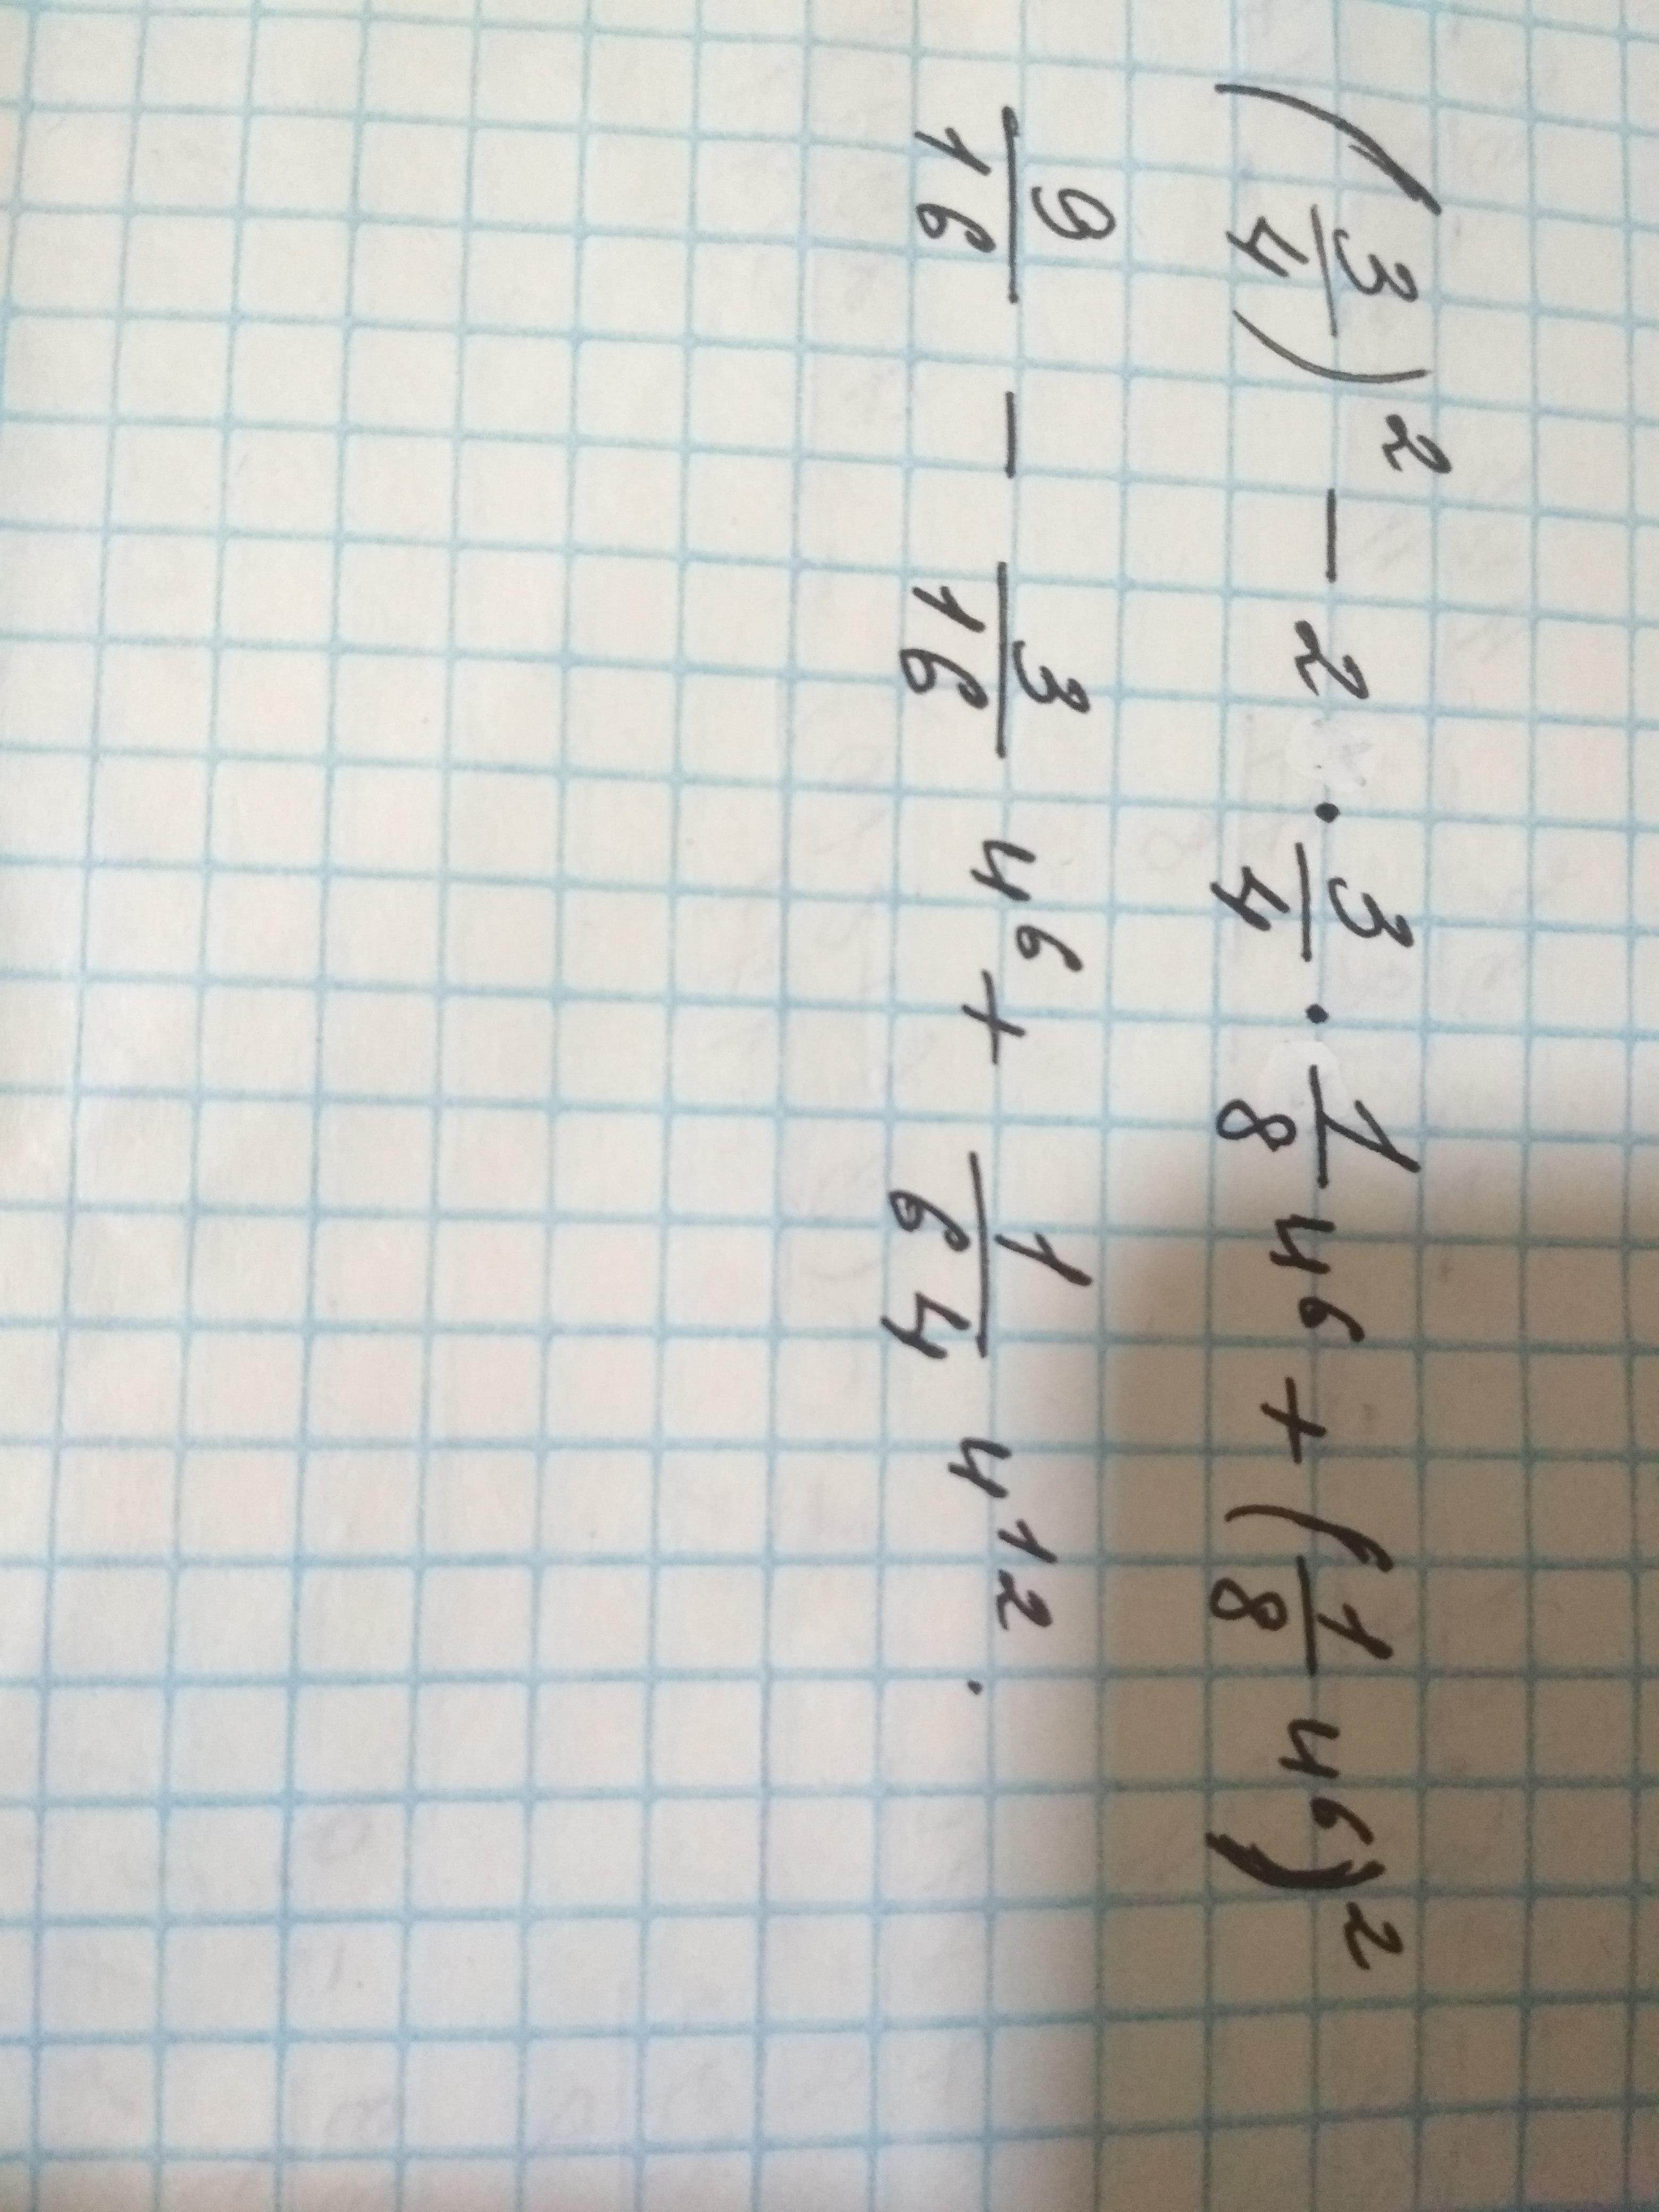 (3/4)² − 2 · 3/4 · 1/8 u⁶ + (1/8 u⁶)²
9/16 − 3/16 u⁶ + 1/64 u¹² .